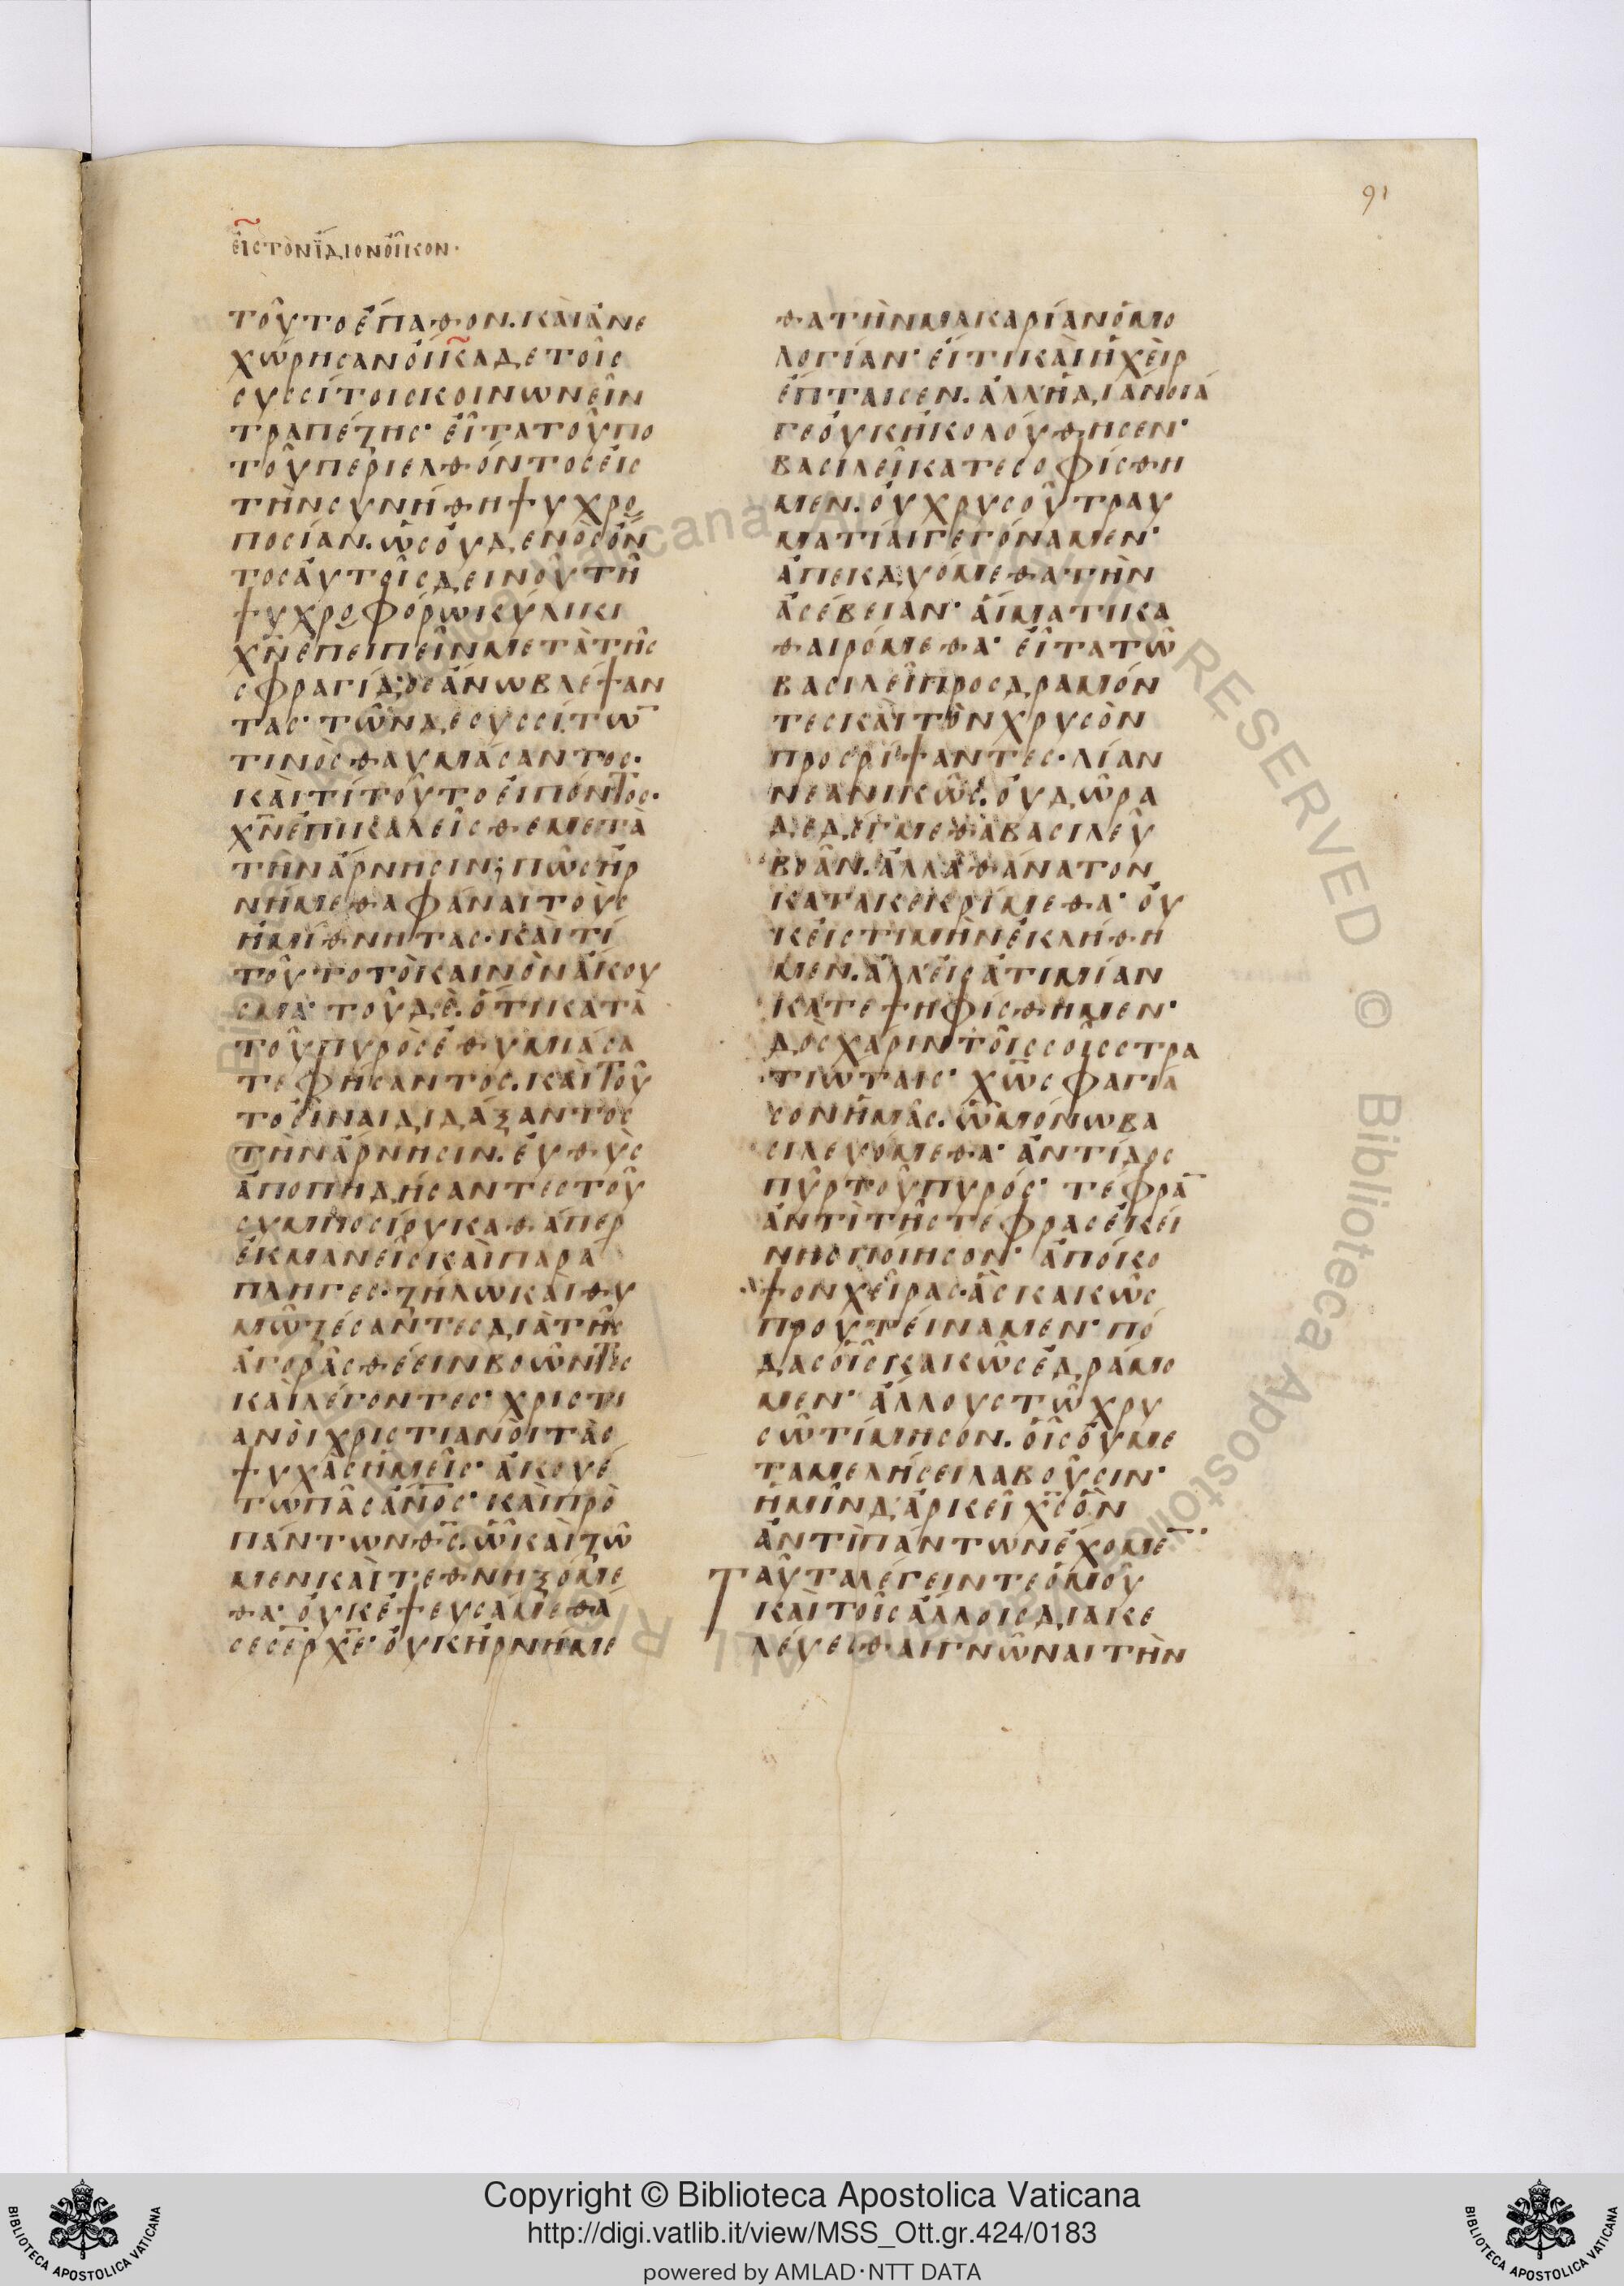 91
εἰς τὸν ἴδιον οἶκον·
τοῦτο ἔπαθον. καὶ ἀνε
χώρησαν οἴκαδε τοῖς
συσσίτοις κοινωνεῖν
τραπέζης· εἶτα τοῦ πο
τοῦ περιελθόντος εἰς
τὴν συνήθη ψυχρο
ποσίαν. ὡς οὐδενὸς ὄν
τος αὐτοῖς δεινοῦ τῆ
ψυχροφόρω κύλικι
χν ἐπειπεῖν μετὰ τῆς
σφραγίδος ἄνω βλέψαν
τας· τῶν δε συσσίτω
τινὸς θαυμάσαντος.
καὶ τί τοῦτο εἰπόντος·
χν ἐπικαλεῖσθε μετὰ
τὴν ἄρνησιν; πῶς ἠρ
νήμεθα φάναι τοὺς
ἡμιθνῆτας· καὶ τί
τοῦτο τὸ καινὸν ἄκου
σμα· τοῦ δὲ. ὅτι κατὰ
τοῦ πυρὸς ἐθυμιάσα
τε φήσαντος. καὶ τοῦ
το εἶναι διδάξαντος
τὴν ἄρνησιν. εὐθὺς
ἀποπηδήσαντες τοῦ
συμποσίου καθάπερ
ἐκμανεῖς καὶ παρα
πλῆγες· ζήλω καὶ θυ
μῶ ζέσαντες διὰ τῆς
ἀγορᾶς θέειν βοῶντες
καὶ λέγοντες· χριστι
ανοὶ χριστιανοὶ τὰς
ψυχὰς ἡμεῖς· ἀκουέ
τω πᾶς ἄνος· καὶ πρὸ
πάντων θς. ὧ καὶ ζῶ
μεν καὶ τεθνηξόμε
θα· οὐκ ἐψευσάμεθά
σε σερ χε· οὐκ ἠρνήμε
θα τὴν μακαρίαν ὁμο
λογίαν· εἴ τι καὶ ἡ χεὶρ
ἔπταισεν. ἀλλ' ἡ διάνοιά
γε οὐκ ἠκολούθησεν·
βασιλεῖ κατεσοφίσθη
μεν. οὐ χρυσοῦ τραυ
ματίαι γεγόναμεν·
ἀπεκδυόμεθα τὴν
ἀσέβειαν· αἵματι κα
θαιρόμεθα· εἶτα τῶ
βασιλεῖ προσδραμόν
τες καὶ τὸν χρυσὸν
προσρίψαντες· λίαν
νεανικῶς. οὐ δῶρα
δεδέγμεθα βασιλεῦ
βοᾶν. ἀλλὰ θάνατον
κατακεκρίμεθα· οὐ
κ εἰς τιμὴν ἐκλήθη
μεν. ἀλλ' εἰς ἀτιμίαν
κατεψηφίσθημεν·
δὸς χάριν τοῖς σοῖς στρα
τιώταις· χῶ σφαγία
σον ἡμᾶς. ὧ μόνω βα
σιλευόμεθα· ἀντίδος
πῦρ τοῦ πυρός· τέφρα
ἀντὶ τῆς τέφρας ἐκεί
νης ποίησον· ἀπόκο
ψον χεῖρας· ἃς κακῶς
προυτείναμεν· πό
δας οἷς κακῶς ἐδράμο
μεν· ἄλλους τῶ χρυ
σῶ τίμησον. οἷς οὐ με
ταμελήσει λαβοῦσιν·
ἡμῖν δ' ἀρκεῖ χς ὃν
ἀντὶ πάντων ἔχομε·
Ταῦτα λέγειν τε ὁμοῦ
καὶ τοῖς ἄλλοις διακε
λεύεσθαι γνῶναι τὴν
Copyright © Biblioteca Apostolica Vaticana
http://digi.vatlib.it/view/MSS_Ott.gr.424/0183
powered by AMLAD·NTT DATA